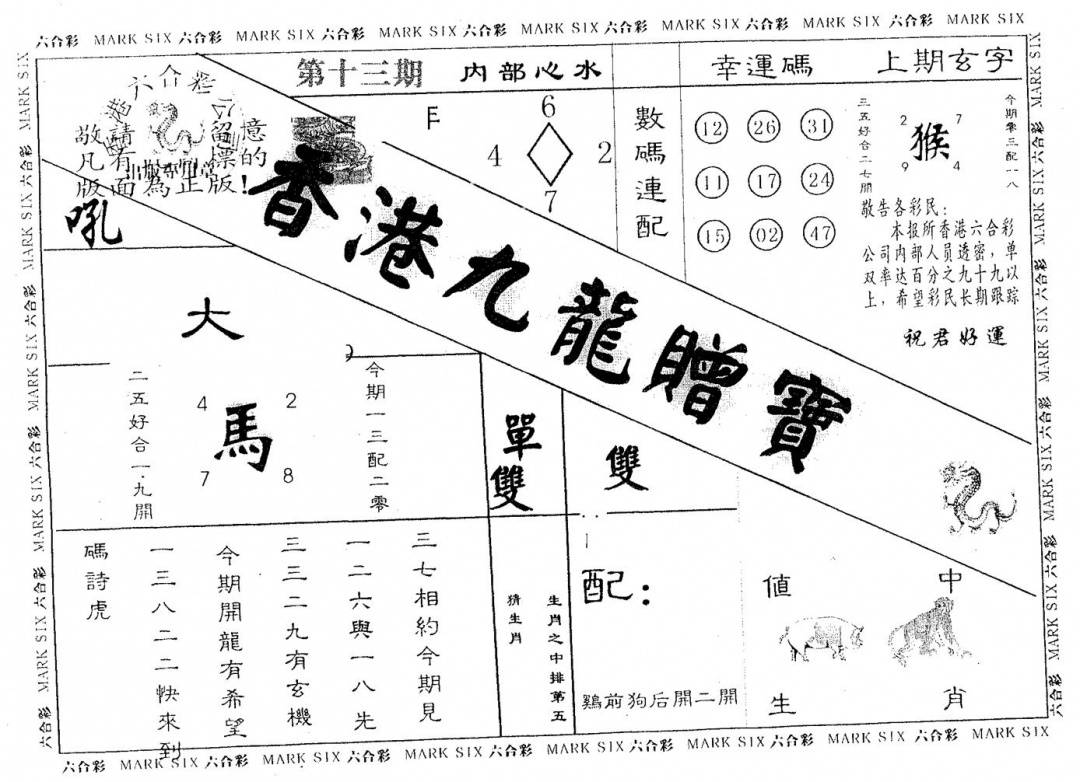 六合彩 MARK SIX 六合彩 MARK SIX 六合彩 MARK SIX 六合彩 MARK SIX 六合彩 MARK SIX 六合彩 MARK SIX 六合彩 MARK SIX
第十三期
内部心水
幸運碼
上期玄字
六合彩
敬請留意
凡有標的
版面為正版!
吼
6
4 2
7
數碼連配
12 26 31
11 17 24
15 02 47
三五好合二七開
2 7
猴
9 4
今期零三配一八
敬告各彩民:
本报所香港六合彩
公司内部人员透密,单
双率达百分之九十九以
上,希望彩民长期跟踪
祝君好運
香港九龍贈寶
大
二五好合一.九開
4 2
馬
7 8
今期一三配二零
單
雙
雙
三七相約今期見
一二六與一八先
三三二九有玄機
今期開龍有希望
一三八二二快來到
碼詩虎
生肖之中排第五
猜生肖
配:
鷄前狗后開二開
值 中
生 肖
六合彩 MARK SIX 六合彩 MARK SIX 六合彩 MARK SIX 六合彩 MARK SIX 六合彩 MARK SIX 六合彩 MARK SIX 六合彩 MARK SIX
MARK SIX 六合彩 MARK SIX 六合彩 MARK SIX 六合彩 MARK SIX 六合彩 MARK SIX 六合彩
MARK SIX 六合彩 MARK SIX 六合彩 MARK SIX 六合彩 MARK SIX 六合彩 MARK SIX 六合彩